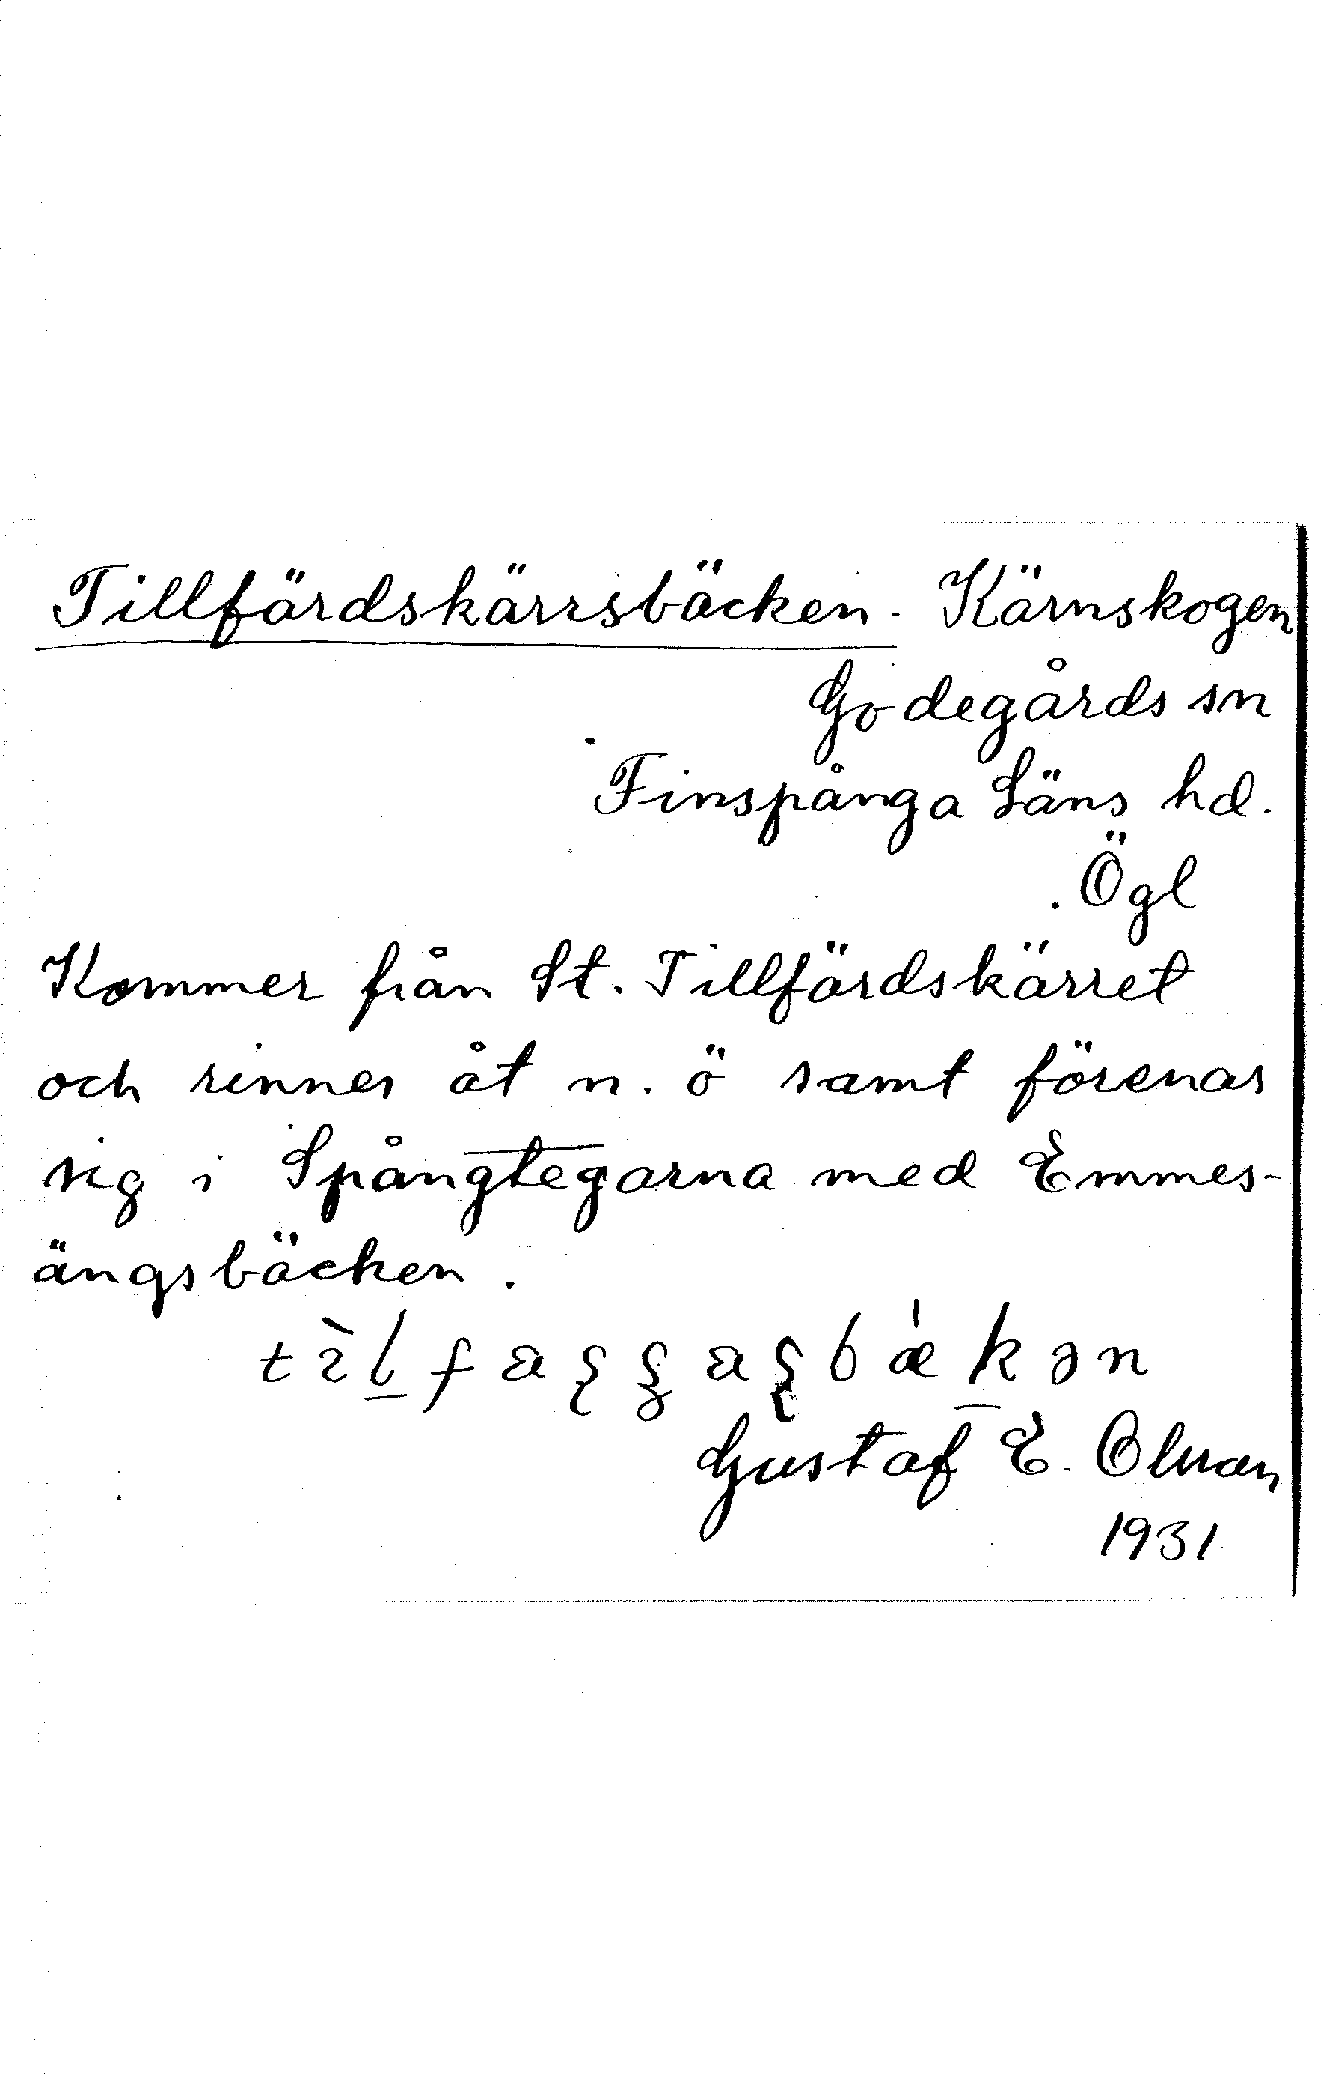 Tillfärdskärrsbäcken. Kärnskogen
Godegårds sn
Finspånga Läns hd.
Ögl
Kommer från St. Tillfärdskärret
och rinner åt n. ö samt förenar
sig i Spångtegarna med Emmes-
ängsbäcken.
Gustaf E. Olman
1931